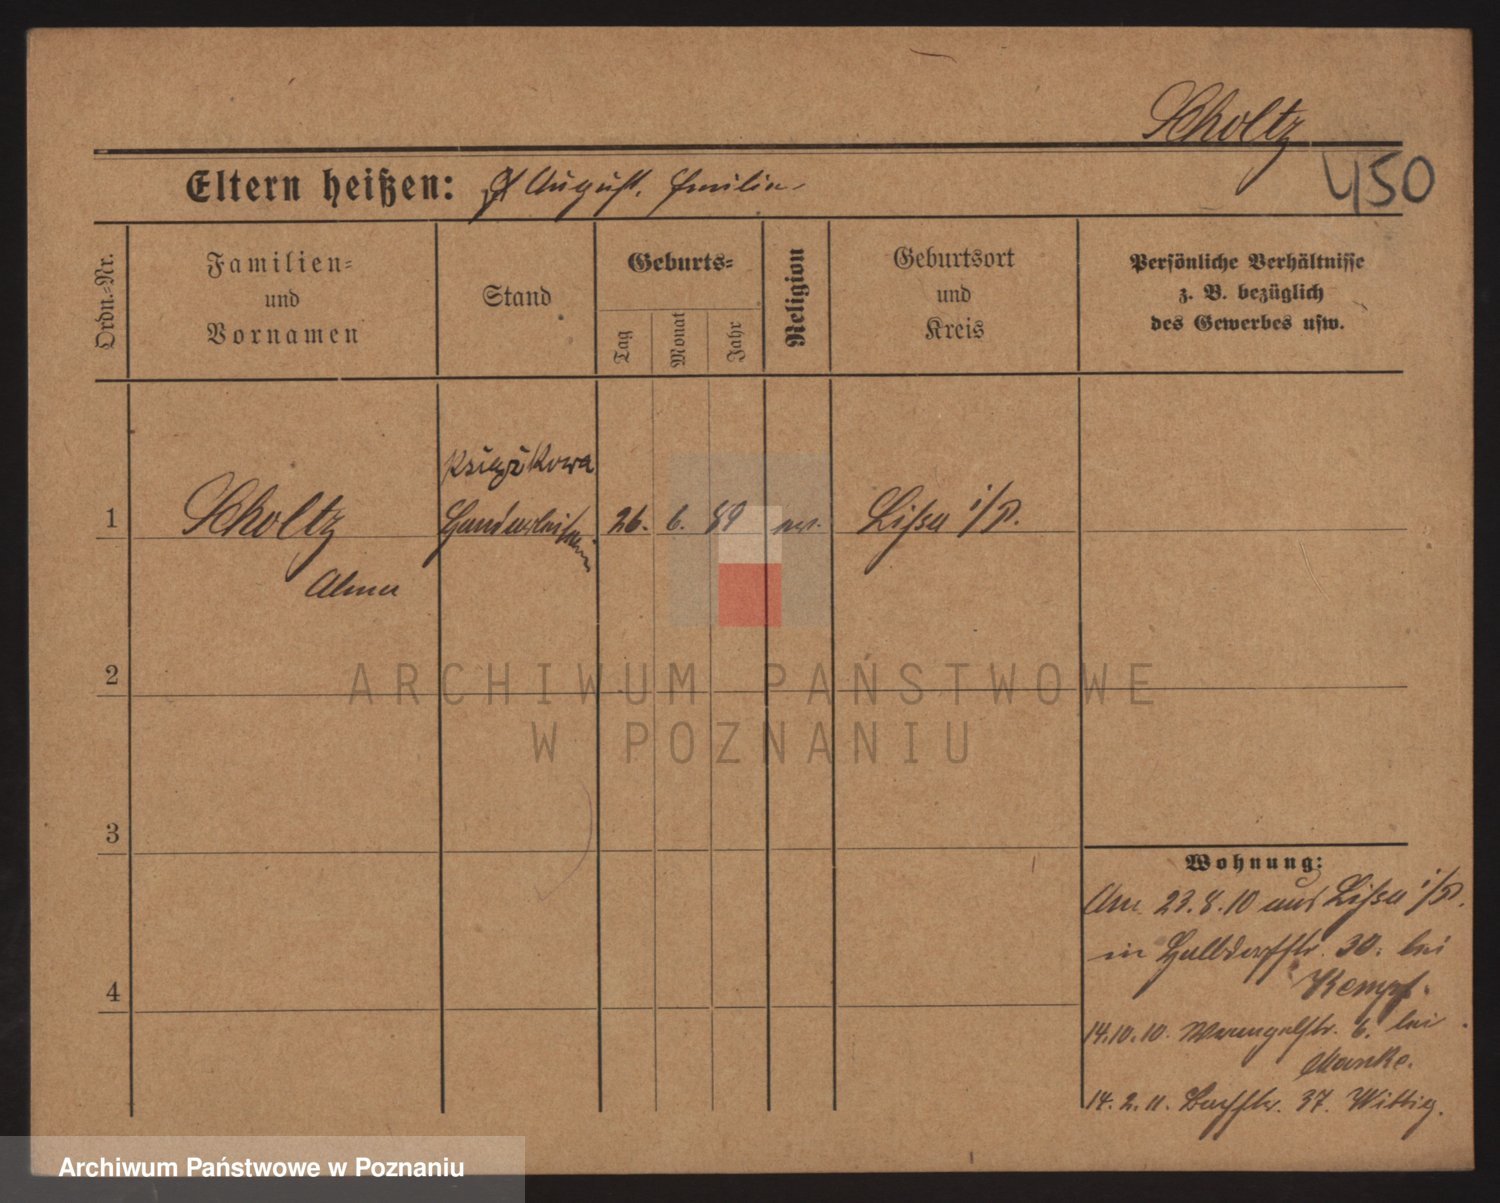 Scholtz
450
Eltern heißen: August, Emilie
Ordn.-Nr.
Familien-
und
Vornamen
Stand
Geburts-
Tag
Monat
Jahr
Religion
Geburtsort
und
Kreis
Persönliche Verhältnisse
z. B. bezüglich
des Gewerbes usw.
1
Scholtz
Alma
26. 6. 89
Lissa i/P.
2
3
4
Wohnung:
Am 23.8.10 aus Lissa i/P.
in Halbdorfstr. 30. bei
Kempf.
14.10.10. Wrangelstr. 6. bei
Manke.
14.2.11. Bachstr. 37. Wittig.
ARCHIWUM PAŃSTWOWE
W POZNANIU
Archiwum Państwowe w Poznaniu